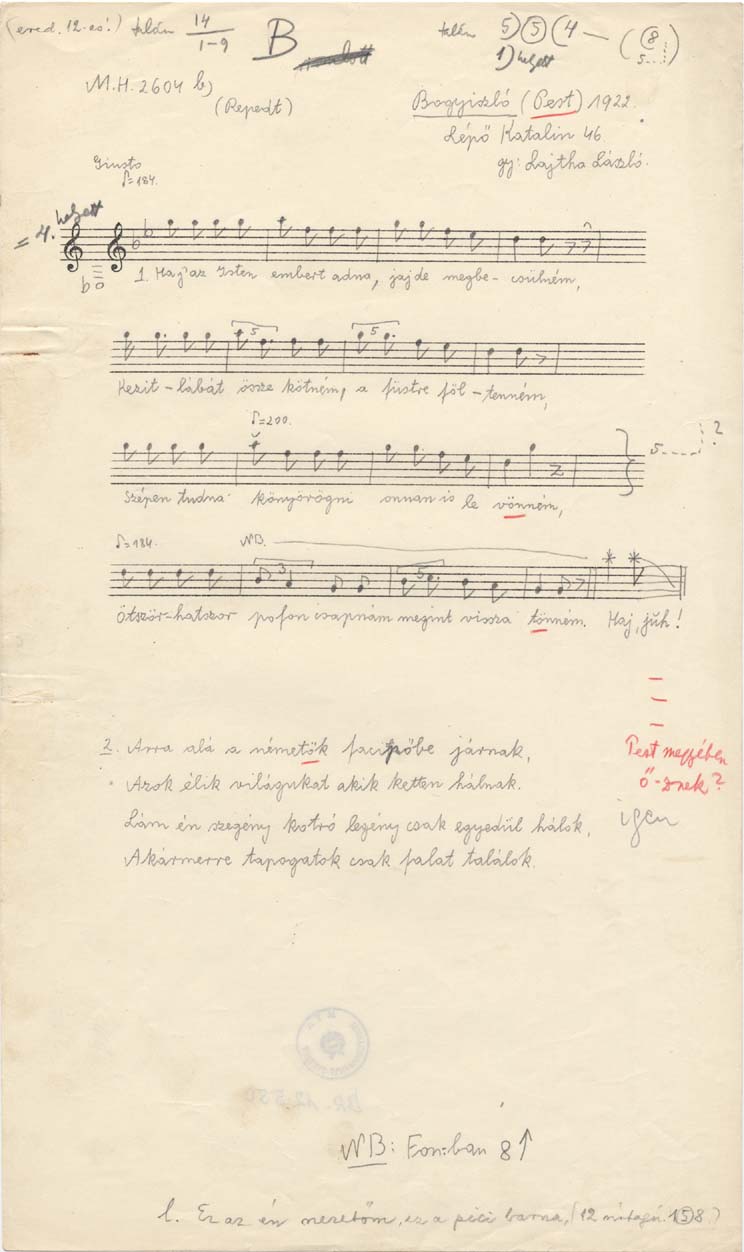 (ered. 12-es!) talán 14/1-9 B talán 5) (5) (4 — (8)
5...
1) helyett
M.H. 2604 b)
(Repedt)
Bogyiszló (Pest) 1922.
Lépő Katalin 46.
gy: Lajtha László.
Giusto
♪=184.
= 4. helyett
1. Haj az Isten embert adna, jajde megbe- csülném,
Kezit-lábát össze kötném, a füstre föl-tenném,
♪=200.
Szépen tudna könyörögni onnan is le vönném,
5---- ?
♪=184. NB.
Ötször-hatszor pofon csapnám megint vissza tönném. Haj, juh!
2. Arra alá a németök facipőbe járnak,
Azok élik világukat akik ketten hálnak.
Lám én szegény kotró legény csak egyedül hálok,
Akármerre tapogatok csak falat találok.
Pest megyében
ő-znek?
igen
BR. 12.550
NB: Fon:ban 8↑
l. Ez az én nezetöm, ez a pici barna, (12 nótagü. 1(5)8.)